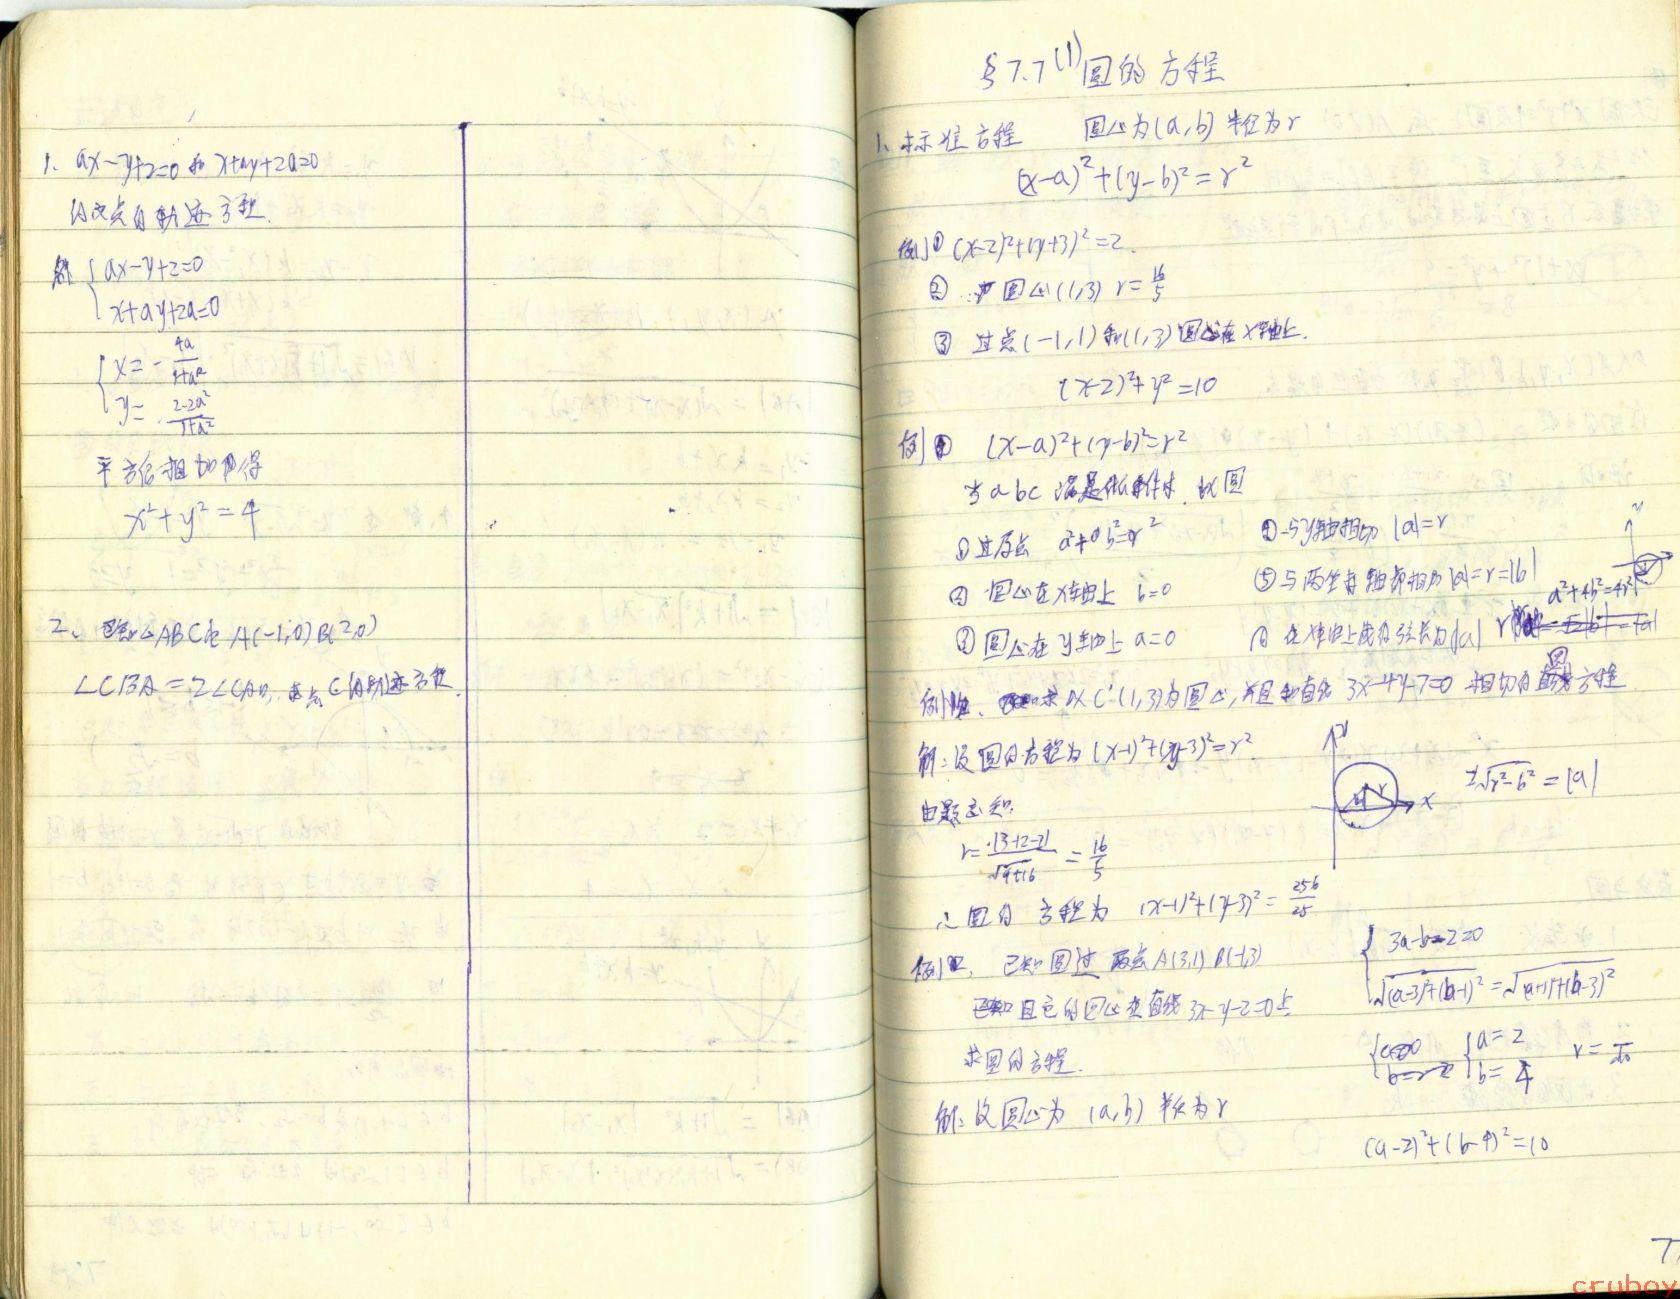 1. ax-y+2=0 和 x+ay+2a=0
的交点的轨迹方程.
解 { ax-y+2=0
x+ay+2a=0
{ x= -4a/(1+a²)
y= (2-2a²)/(1+a²)
平方后相加得
x²+y²=4
2、已知△ABC中 A(-1,0) B(2,0)
∠CBA=2∠CAB, 求点C的轨迹方程.
§7.7(1) 圆的方程
1、标准方程 圆心为(a,b) 半径为r
(x-a)²+(y-b)²=r²
例① (x-2)²+(y+3)²=2.
② 圆心(1,3) r=16/5
③ 过点(-1,1)和(1,3)圆心在x轴上.
(x-2)²+y²=10
例 (x-a)²+(y-b)²=r²
当abc满足什么条件时, 圆
①过原点 a²+b²=r²
④与y轴相切 |a|=r
② 圆心在x轴上 b=0
⑤与两坐标轴都相切|a|=r=|b|
a²+4b²=4r²
③圆心在y轴上 a=0
在x轴上截的弦长为|a|
例 求以C(1,3)为圆心,并且和直线 3x-4y-7=0 相切的圆方程
解:设圆的方程为(x-1)²+(y-3)²=r²
±√(r²-b²)=|a|
y
x
b r
由题意知:
r= = 16/5
∴圆的方程为 (x-1)²+(y-3)²=256/25
例 已知圆过两点A(3,1) B(-1,3)
且它的圆心在直线3x-y-2=0上
求圆的方程.
解:设圆心为 (a,b) 半径为r
{ 3a-b-2=0
√((a-3)²+(b-1)²)=√((a+1)²+(b-3)²)
{ a=2
b=4
r=√10
(a-2)²+(b-4)²=10
cruboy